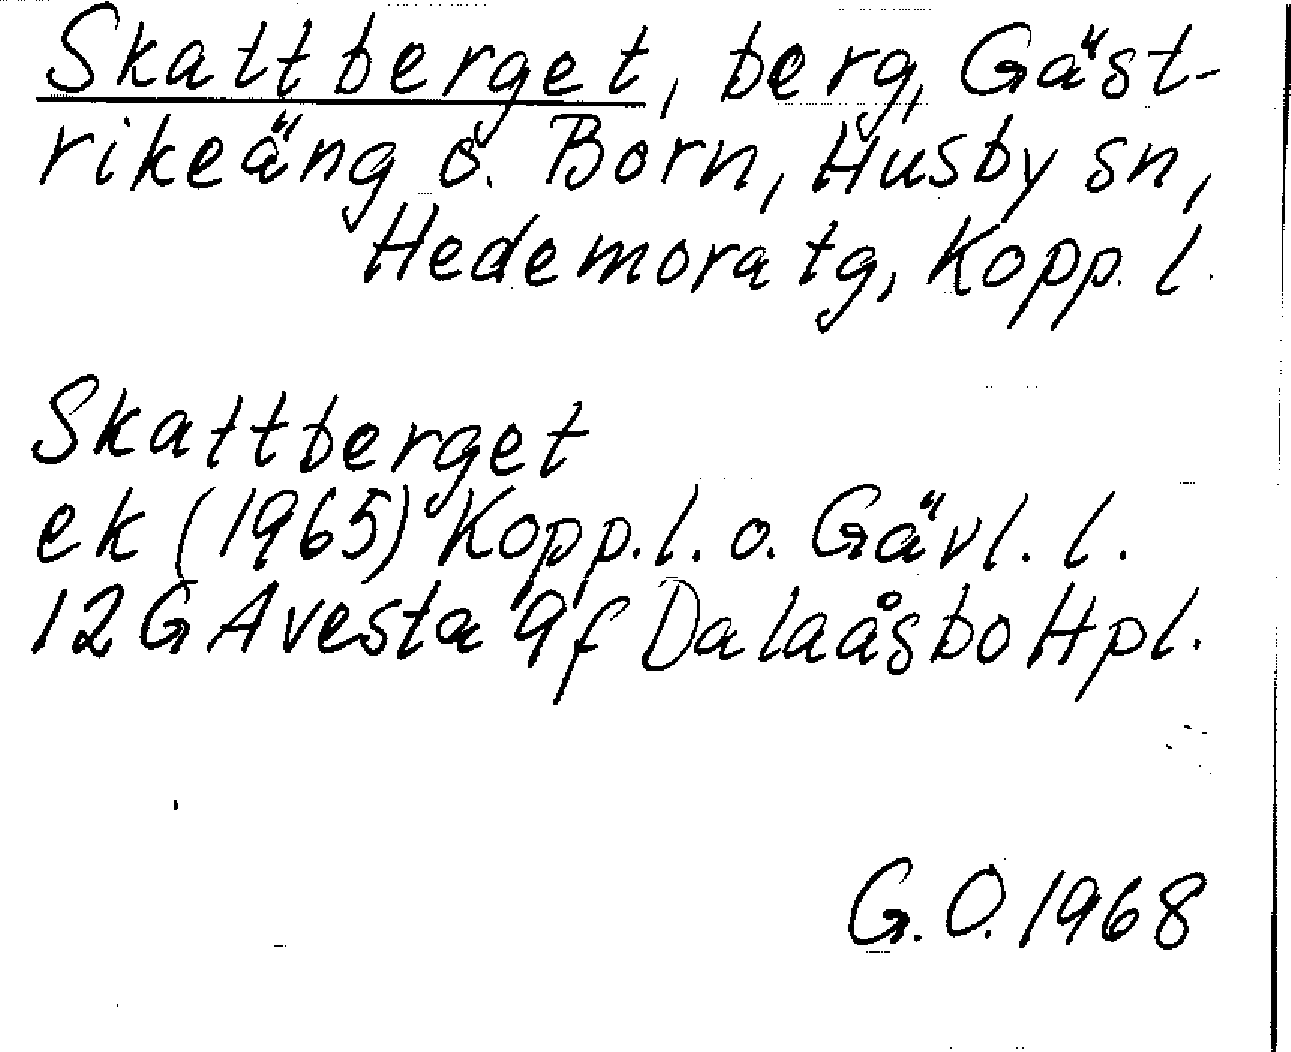 Skattberget, berg, Gäst-
rikeäng o. Born, Husby sn,
Hedemora tg, Kopp. l.
Skattberget
ek (1965) Kopp. l. o. Gävl. l.
12G Avesta 9f Dalaåsbo Hpl.
G. O. 1968